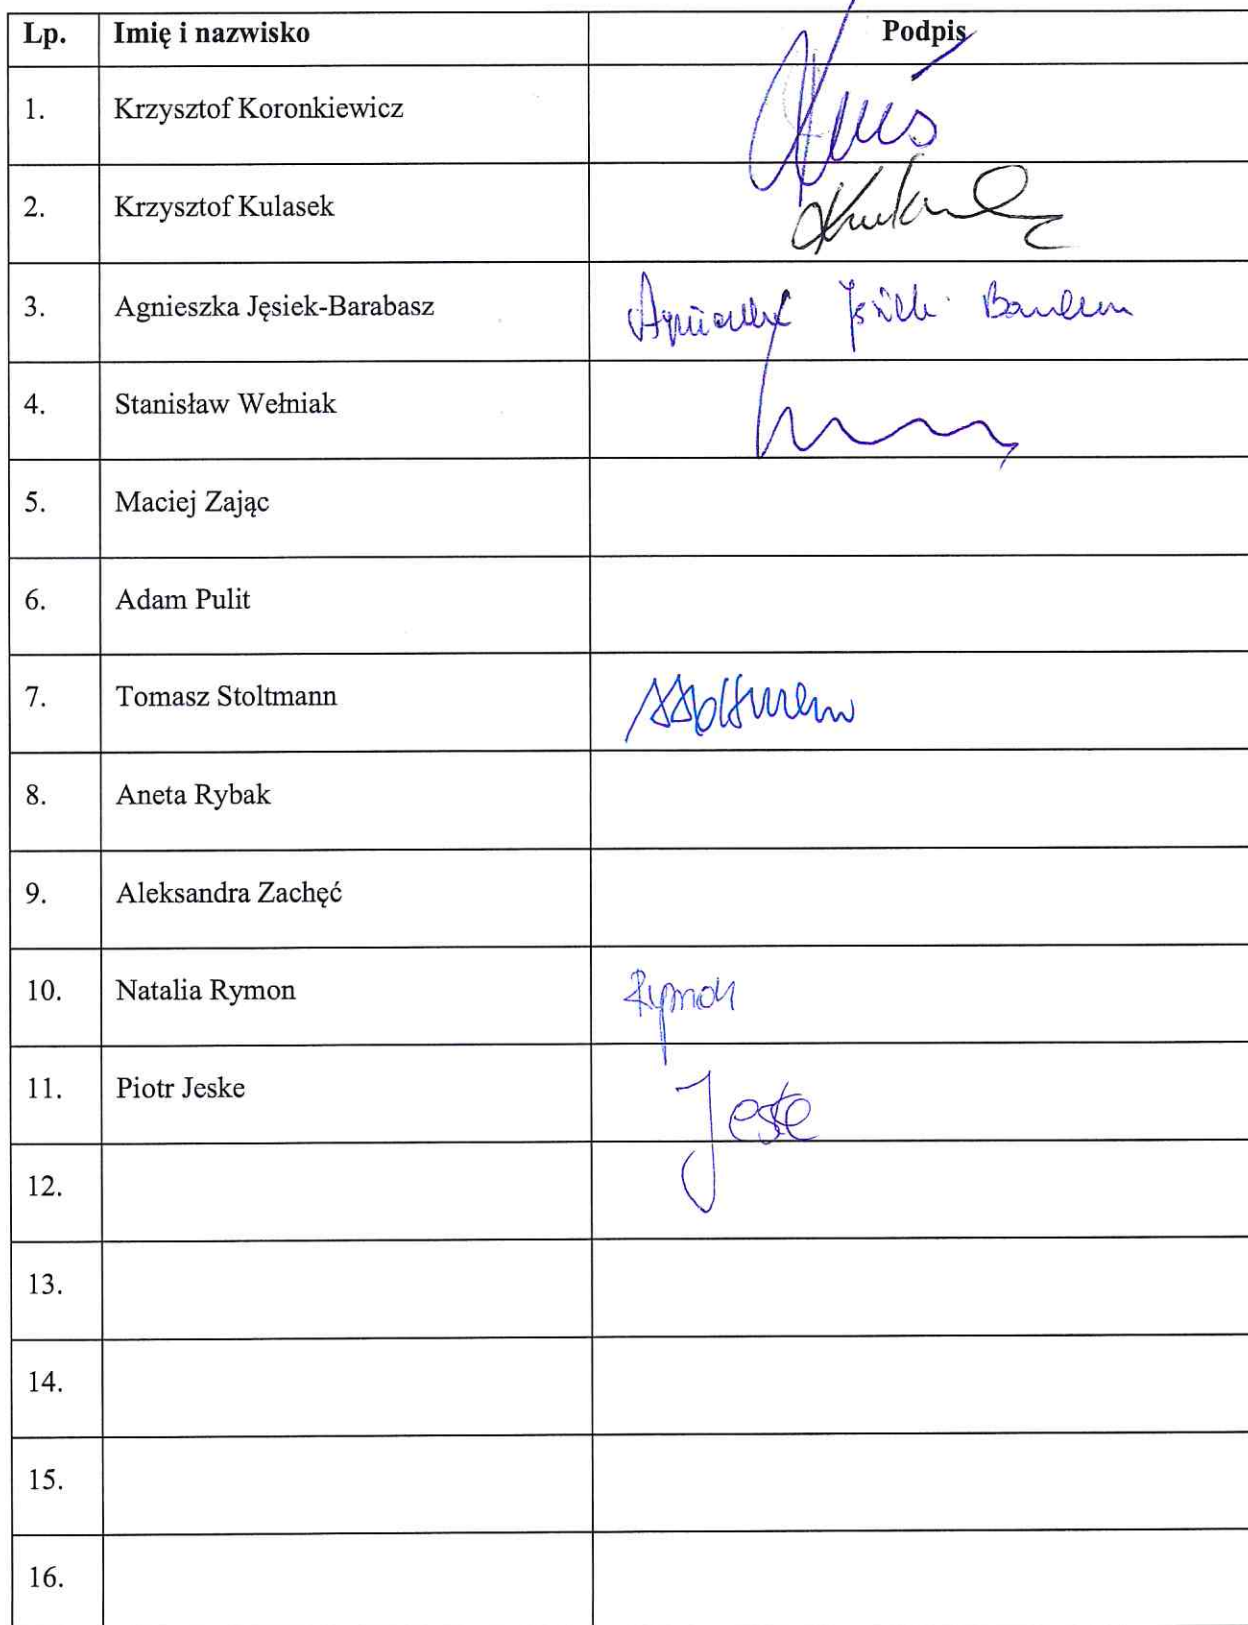 Lp. Imię i nazwisko Podpis
1. Krzysztof Koronkiewicz
2. Krzysztof Kulasek
3. Agnieszka Jęsiek-Barabasz
4. Stanisław Wełniak
5. Maciej Zając
6. Adam Pulit
7. Tomasz Stoltmann
8. Aneta Rybak
9. Aleksandra Zachęć
10. Natalia Rymon Rymon
11. Piotr Jeske Jeske
12.
13.
14.
15.
16.